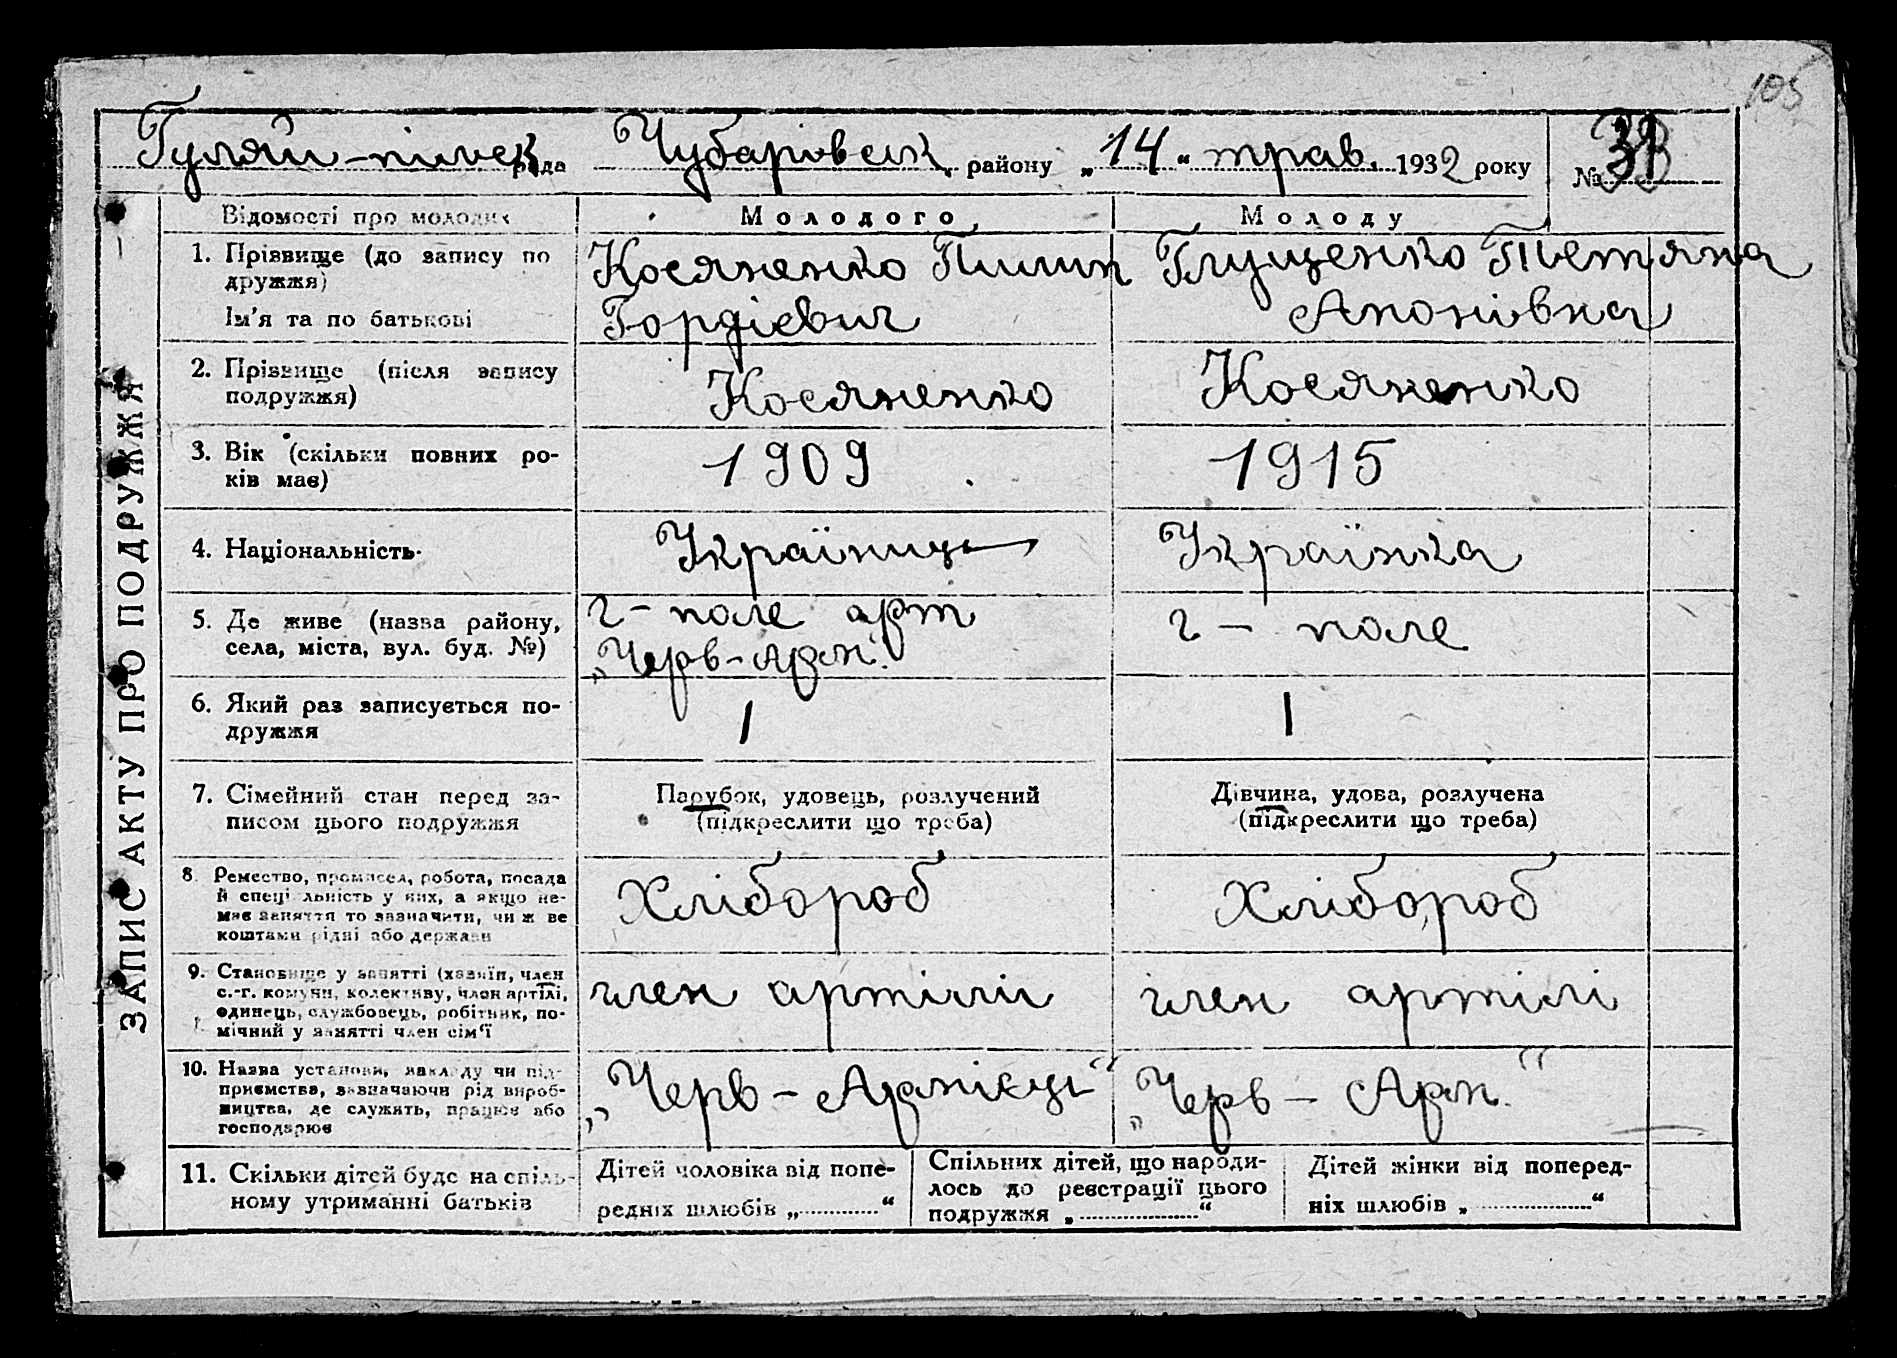 105
Гуляй-пільськ рада Чубарівськ району „14“ трав. 1932 року №
ЗАПИС АКТУ ПРО ПОДРУЖЖЯ
Відомості про молодих
Молодого
Молоду
1. Прізвище (до запису по
дружжя)
Ім'я та по батькові
Косяненко Пилип
Гордієвич
Глущенко Тетяна
Антонівна
2. Прізвище (після запису
подружжя)
Косяненко
Косяненко
3. Вік (скільки повних ро-
ків має)
1909
1915
4. Національність
Українець
Українка
5. Де живе (назва району,
села, міста, вул. буд. №)
г-поле арт
„Черв-Арм."
г - поле
6. Який раз записується по-
дружжя
1
1
7. Сімейний стан перед за-
писом цього подружжя
Парубок, удовець, розлучений
(підкреслити що треба)
Дівчина, удова, розлучена
(підкреслити що треба)
8. Ремество, промисел, робота, посада
й спеціальність у них, а якщо не-
має заняття то зазначити, чиж ве
коштами рідні або держави
Хлібороб
Хлібороб
9. Становище у занятті (хазяїн, член
с.-г. комуни, колективу, член артілі,
одинець, службовець, робітник, по-
мічний у занятті член сім'ї
член артілі
член артілі
10. Назва установи, закладу чи під-
приємства, зазначаючи рід вироб-
ництва, де служить, працює або
господарює
„Черв-Армієць“
„Черв - Арм."
11. Скільки дітей буде на спіль-
ному утриманні батьків
Дітей чоловіка від попе-
редніх шлюбів „............“
Спільних дітей, що народи-
лось до реєстрації цього
подружжя „............“
Дітей жінки від поперед-
ніх шлюбів „............“